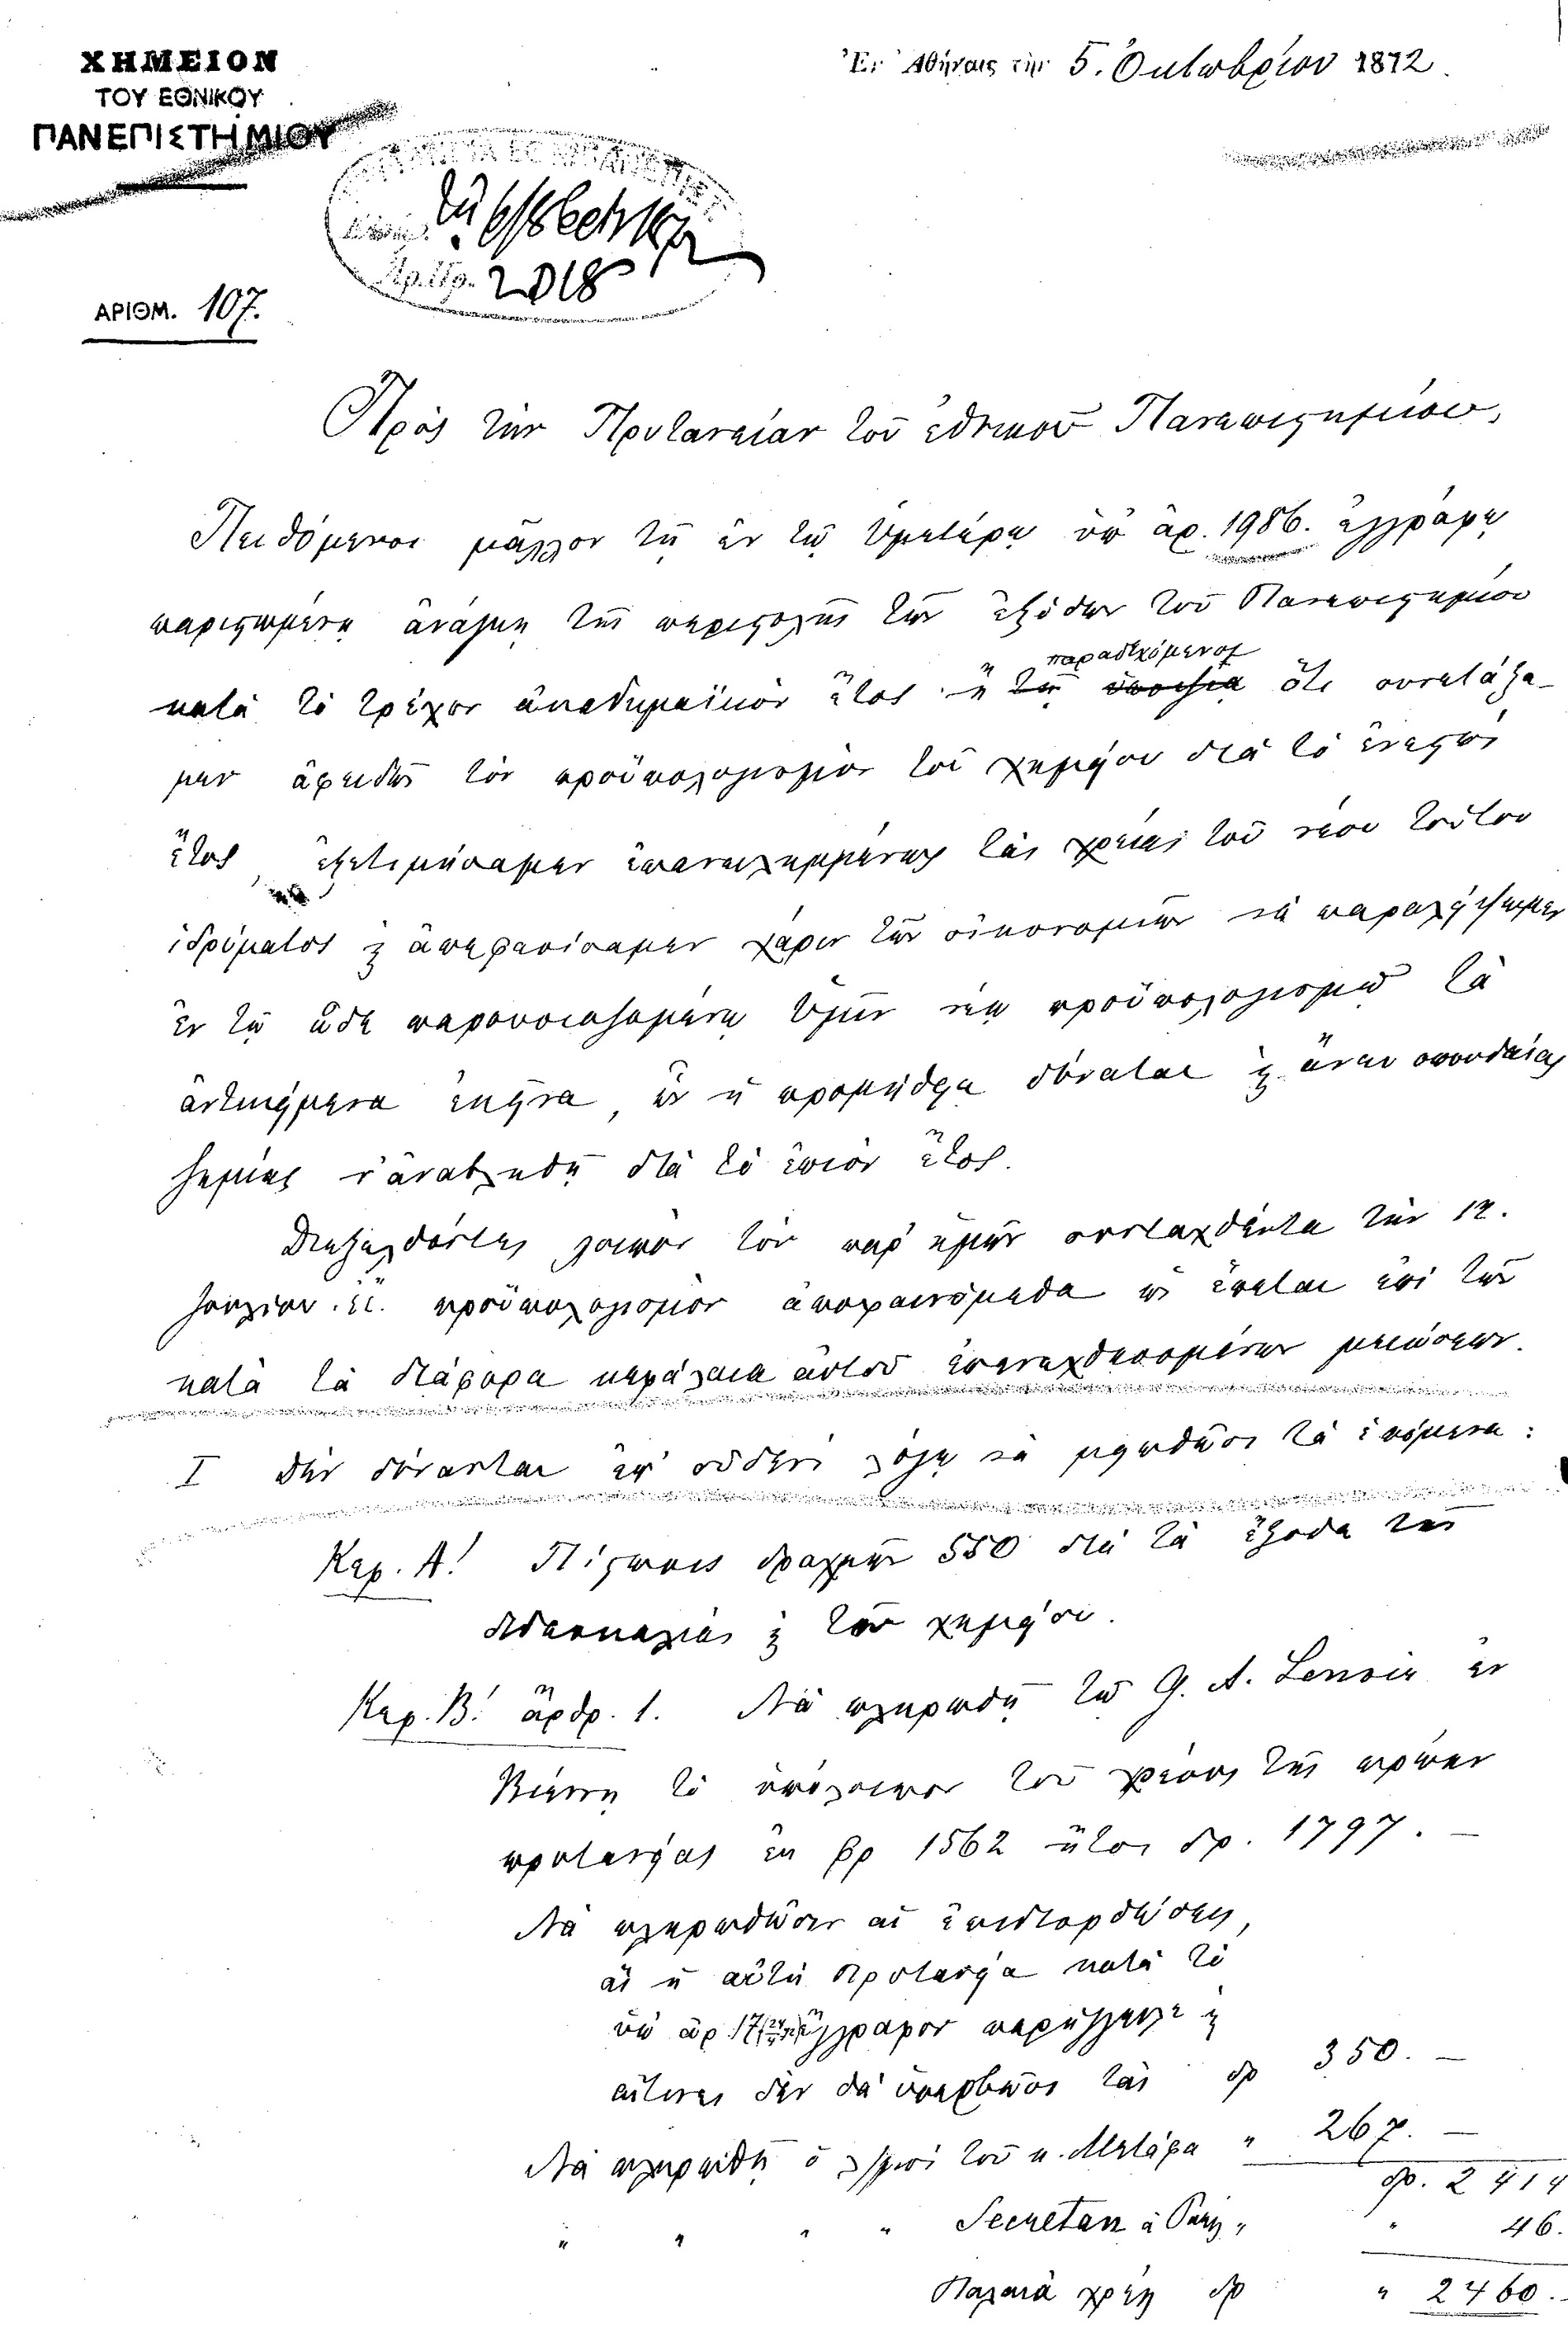 ΧΗΜΕΙΟΝ
ΤΟΥ ΕΘΝΙΚΟΥ
ΠΑΝΕΠΙΣΤΗΜΙΟΥ
Ἐν Ἀθήναις τὴν 5. Ὀκτωβρίου 1872
Ἀρ. Πρ. 2018
ΑΡΙΘΜ. 107.
Πρὸς τὴν Πρυτανείαν τοῦ ἐθνικοῦ Πανεπιστημίου,
Πειθόμενοι μᾶλλον τῇ ἐν τῷ ὑμετέρῳ ὑπ' ἀρ. 1986. ἐγγράφῳ
παριστωμένῃ ἀνάγκῃ τῆς περιστολῆς τῶν ἐξόδων τοῦ Πανεπιστημίου
κατὰ τὸ τρέχον ἀκαδημαϊκὸν ἔτος ἢ παραδεχόμενοι ὅτι συνετάξα-
μεν ἀφειδῶς τὸν προϋπολογισμὸν τοῦ χημείου διὰ τὸ ἐνεστὼς
ἔτος, ἐξετιμήσαμεν ἐπανειλημμένως τὰς χρείας τοῦ νέου τούτου
ἱδρύματος καὶ ἀπεφασίσαμεν χάριν τῶν οἰκονομιῶν νὰ παραλείψωμεν
ἐν τῷ ὧδε παρουσιαζομένῳ ὑμῖν νέῳ προϋπολογισμῷ τὰ
ἀντικείμενα ἐκεῖνα, ὧν ἡ προμήθεια δύναται καὶ ἄνευ σπουδαίας
ζημίας ν' ἀναβληθῇ διὰ τὸ ἐπιὸν ἔτος.
Διεξελθόντες λοιπὸν τὸν παρ' ἡμῶν συνταχθέντα τὴν 12.
Ἰουλίου ἐ.ἔ. προϋπολογισμὸν ἀποφαινόμεθα ὡς ἕπεται ἐπὶ τῶν
κατὰ τὰ διάφορα κεφάλαια αὐτοῦ ἐπενεχθησομένων μειώσεων.
I Δὲν δύνανται ἐπ' οὐδενὶ λόγῳ νὰ μειωθῶσι τὰ ἑπόμενα:
Κεφ. Α'. Πίστωσις δραχμῶν 550 διὰ τὰ ἔξοδα τῆς
διδασκαλίας καὶ τοῦ χημείου.
Κεφ. Β'. ἄρθρ. 1. Νὰ πληρωθῇ τῷ G. A. Lenoir ἐν
Βιέννῃ τὸ ὑπόλοιπον τοῦ χρέους τῆς πρώην
πρυτανείας ἐκ φρ 1562 ἤτοι δρ. 1797. —
Νὰ πληρωθῶσιν αἱ ἐπιδιορθώσεις,
ἃς ἡ αὐτὴ πρυτανεία κατὰ τὸ
ὑπ' ἀρ. 17 ἔγγραφον παρήγγειλε καὶ
αἵτινες δὲν θὰ ὑπερβῶσι τὰς δρ 350. —
Νὰ πληρωθῇ ὁ λ/σμὸς τοῦ κ. Μεταξᾶ " 267. —
δρ. 2414
" " " " Secretan à Paris " " 46.
Παλαιὰ χρέη δρ " 2460. —